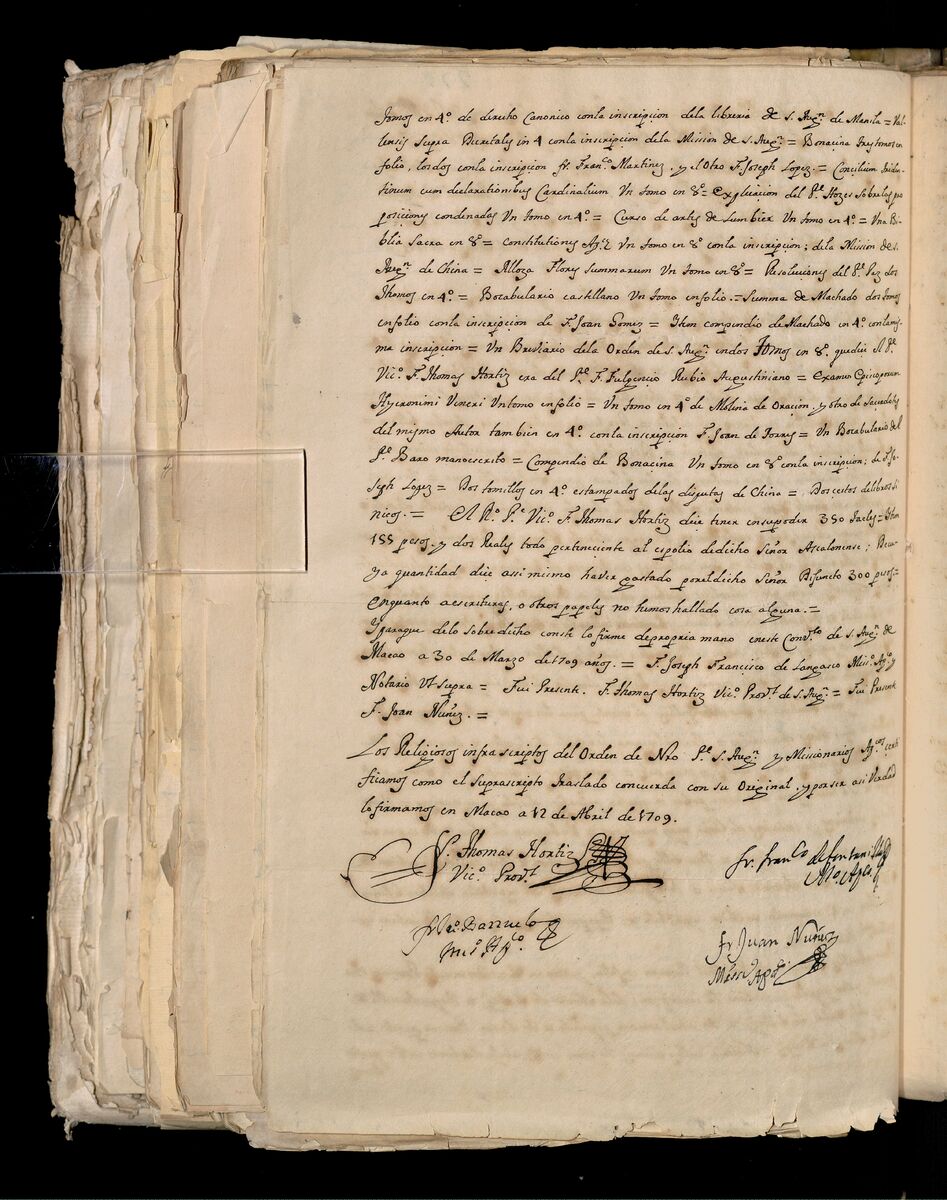 tomos en 4º. de derecho Canonico con la inscripcion dela libreria de S. Augn. de Manila = Val-
lensis supra Decretales in 4 con la inscripcion dela Mission de S. Augn. = Bonacina tres tomos en
folio, los dos con la inscripcion fr. Franco. Martinez, y el Otro F. Joseph Lopez. = Concilium Triden-
tinum cum declarationibus Cardinalium Un tomo en 8º = Explicacion del Pe. Hozes sobre las pro
posiciones condenadas Un tomo en 4º = Curso de artes de Lumbier Un tomo en 4º. = Una Bi-
blia Sacra en 8º = Constitutiones Un tomo en 8º con la inscripcion; de la Mission de S.
Augn. de China = Alloza Flores summarum Un tomo en 8º = Resoluciones del Pe. Paz dos
Thomos en 4º = Bocabulario castellano Un tomo en folio. = Summa de Machado dos tomos
en folio con la inscripcion de F. Joan Gomez = Iten compendio de Machado en 4º. con la mis-
ma inscripcion = Un Breviario dela Orden de S. Augn. en dos Tomos en 8º. que dice el Pe.
Vico. F. Thomas Hortiz era del Pe. F. Fulgencio Rubio Augustiniano = Examen Episcoporum
Hyeronimi Veneri Un tomo en folio = Un tomo en 4º de Molina de Oracion, y otro de Sacerdotes
del mismo Autor tambien en 4º. con la inscripcion F. Joan de Torres = Un Bocabulario del
Pe. Baro manoescrito = Compendio de Bonacina Un tomo en 8º con la inscripcion; de F. Jo-
seph Lopez = Dos tomillos en 4º. estampados delas disputas de China = Dos cestos de libros Si
nicos. = El Ro. Pe. Vico. F. Thomas Hortiz dice tener en su poder 350 taeles = Iten
155 pesos, y dos Reales todo perteneciente al espolio de dicho Señor Ascalonense; De cu-
ya quantidad dice asi mismo haver gastado por el dicho Señor Difuncto 300 pesos =
En quanto a escrituras, o otros papeles no hemos hallado cosa alguna. =
Y para que delo sobre dicho conste lo firme de propria mano en este Convto. de S. Augn. de
Macao a 30 de Marzo de 1709 años. = F. Joseph Francisco de Langasco Misso. Ago. y
Notario Ut supra = Fui Presente. F. Thomas Hortiz Vico. Provl. de S. Augn. = Fui Presente
F. Joan Nuñez. =
Los Religiosos infra scriptos del Orden de Nro Pe. S. Augn. y Missionarios Agcos. certi
ficamos como el suprascripto traslado concuerda con su Original, y por ser asi Verdad
lo firmamos en Macao a 12 de Abril de 1709.
F. Thomas Hortiz
Vico. Provl.
fr. Franco de fontani
Mo. Apco.
Barruelo
Miso. Ago.
fr Juan Nuñez
Misso Apo.